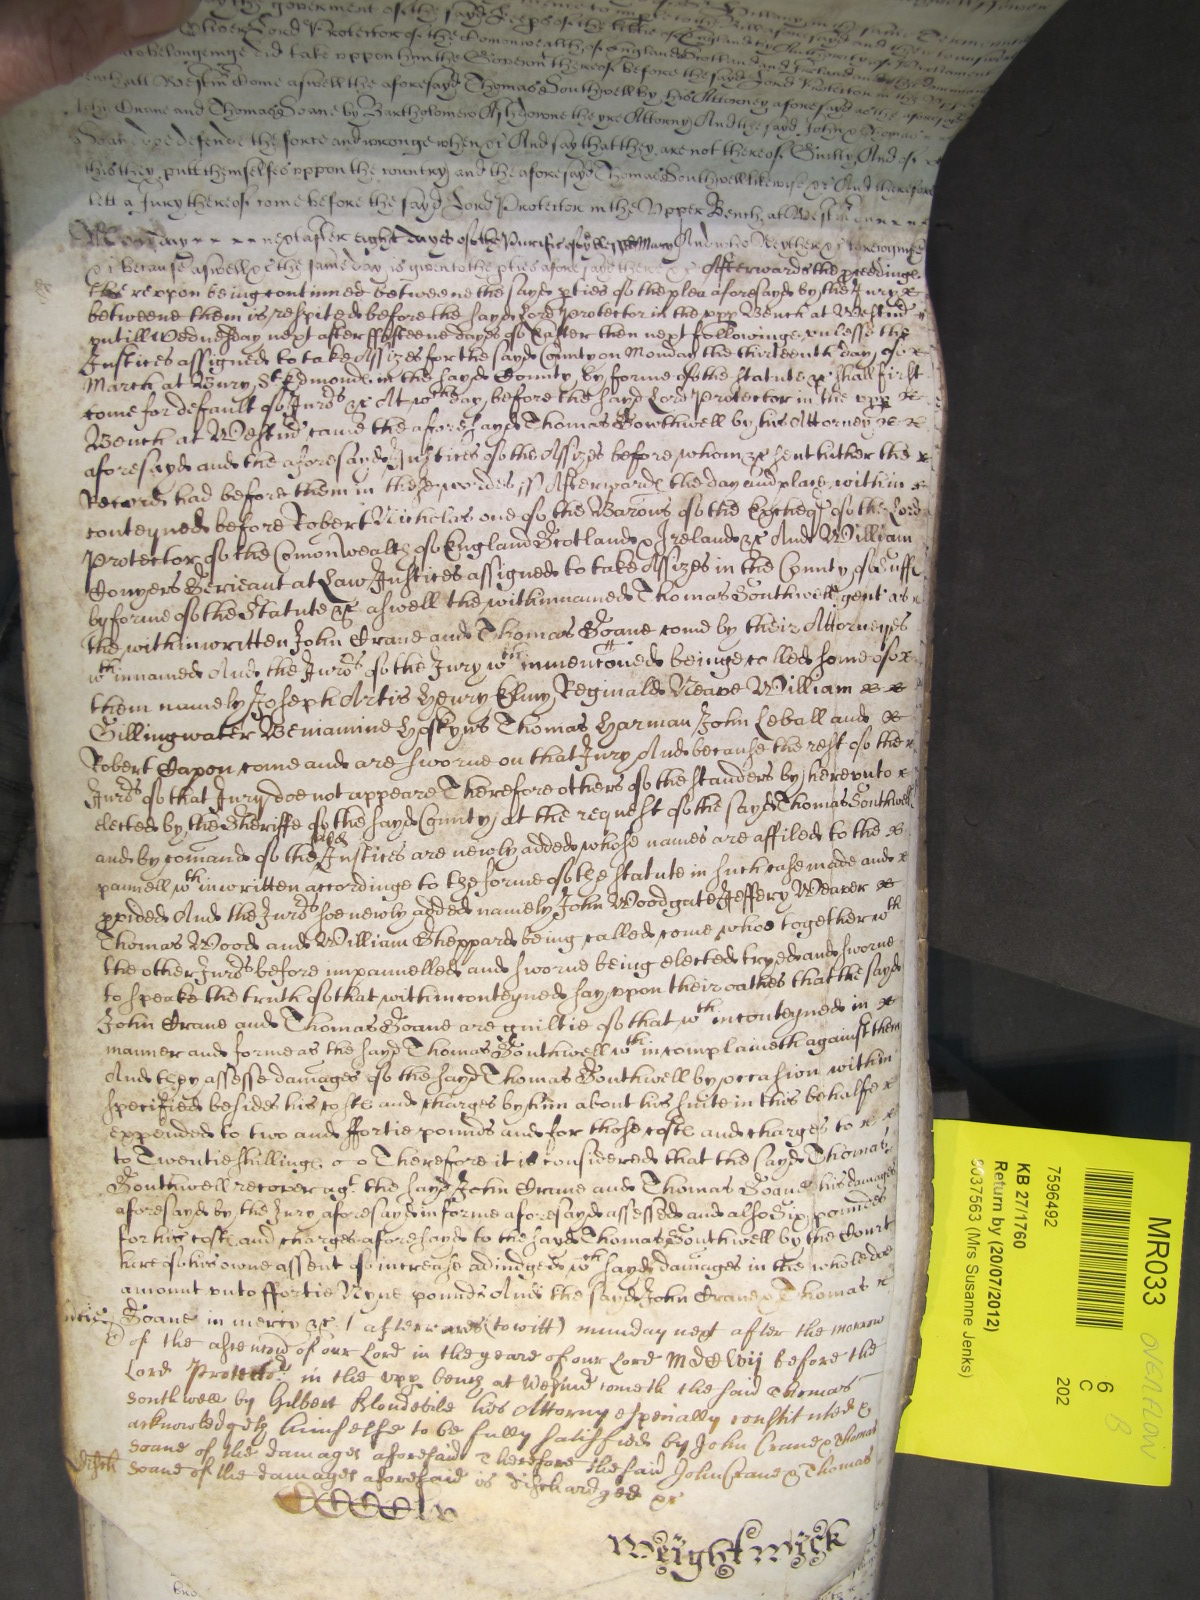 the goverment of the sayd
Oliver Lord Protector of the Comonwealth of England Scotland and Ireland
belongeinge did take uppon him the Goverm thereof before the sayd Lord Protector in the Upper
aswell the aforesayd Thomas Southwell by his Attorney aforesayd as the aforesayd
John Crane and Thomas Soane by Bartholomew Ashdowne theyre Attorny And the sayd John & Thomas
Soane doe defend the force and wronge when &c And say that they are not thereof Guilty And of
this they putt themselfes uppon the country and the aforesayd Thomas Southwell likewise &c And therefore
lett a Jury thereof come before the sayd Lord Protector in the Upper Bench at Westmr
day next after eight dayes of the Purificc of the blessed Mary And who Neyther &c to recognize
&c because aswell &c the same day is given to the pties aforesayd there &c Afterwards the pceedings
thereuppon being continued betweene the sayd pties of the plea aforesayd by the Jury &
betweene them is respited before the sayd Lord Protector in the vpp Bench at Westmr
untill Wednesday next after fifteene dayes of Easter then next followinge unlesse the
Justices assigned to take Assizes for the sayd County on Monday the thirteenth day of
March at Bury St Edmonds in the sayd County by forme of the statute &c shall first
come for default of Jurds &c At wch day before the sayd Lord Protector in the vpp
Bench at Westmr came the aforesayd Thomas Southwell by his Attorney
aforesayd and the aforesayd Justices of the Assizes before whom &c sent hither the
Record had before them in these wordes ss Afterwards the day and place within
conteyned before Robert Nicholas one of the Barons of the Excheqr of the Lord
Protector of the Comonwealth of England Scotland & Ireland &c And William
Conyers Serieant at Law Justices assigned to take Assizes in the County of Suff
by forme of the Statute &c aswell the withinnamed Thomas Southwell gent as
the withinwritten John Crane and Thomas Soane come by their Attorneyes
wthinnamed And the Jurds of the Jury wthinmenconed beinge called some of
them namely Joseph Artis Henry Elmy Reginald Neave William
Gillingwater Beniamine Hoskyns Thomas Harman John Leball and
Robert Capon come and are sworne on that Jury And because the rest of the
Jurds of that Jury doe not appeare Therefore others of the standers by hereunto
elected by the Sheriffe of the sayd County at the request of the sayd Thomas Southwell
and by comand of the sayd Justices are newly added whose names are affiled to the
pannell wthinwritten accordinge to the forme of the statute in such case made and
pvided And the Jurds soe newly added namely John Woodgate Jeffery Weaver
Thomas Wood and William Sheppard being called come whoe together wth
the other Jurds before impannelled and sworne being elected tryed and sworne
to speake the truth of that within conteyned say upon their oathes that the sayd
John Crane and Thomas Soane are guiltie of that wthin conteyned in
manner and forme as the sayd Thomas Southwell wthin complaineth against them
And they assesse damages of the sayd Thomas Southwell by occasion within
specified besides his costs and charges by him about his suite in this behalfe
expended to two and ffortie pounds and for those costs and charges to
to Twentie shillings Therefore it is considered that the sayd Thomas
Southwell recover agt the sayd John Crane and Thomas Soane his damages
aforesayd by the Jury aforesayd in forme aforesayd assessed and also Six pounds
for his costs and charges aforesayd to the sayd Thomas Southwell by the Court
here of his owne assent of increase adiudged wch sayd damages in the whole doe
amount unto ffortie Nyne pounds And the sayd John Crane & Thomas
Soane in mercy &c / afterwards (to witt) munday next after the morrow
of the ascencon of our Lord in the yeare of our Lord MDCLVij before the
Lord Protector in the vpp bench at Westmr cometh the said Thomas
Southwell by Gilbert Blondevile his Attorny especially constituted &
acknowledgeth himselfe to be fully satisfied by John Crane & Thomas
Soane of the damages aforesaid Therefore the said John Crane & Thomas
Soane of the damages aforesaid is dischardged &c
Weightwick
MR033
6
C
202
7596492
KB 27/1760
Return by (20/07/2012)
9037563 (Mrs Susanne Jenks)